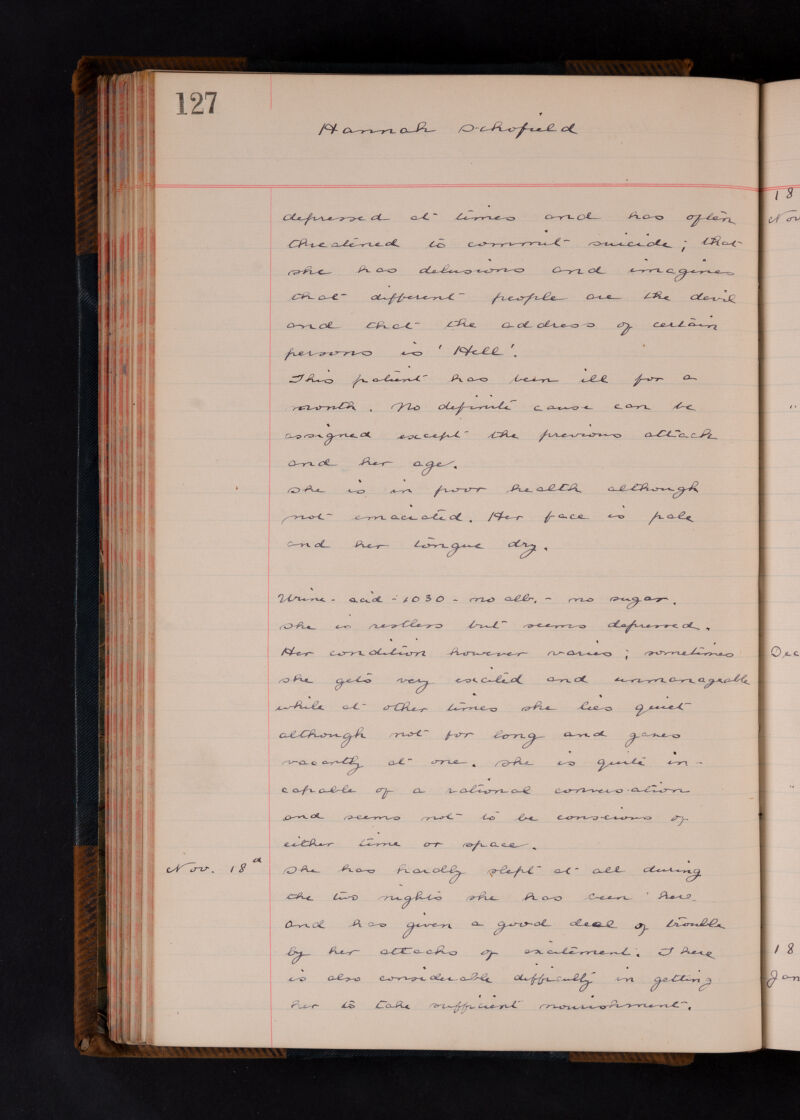 127
Hannah Schofield
depressed at times and has often
threatened to commit suicide; that
she has delusions and imagines
that different people are the devil
and that the address of certain
persons is 'Hell'.
This patient has been ill for a
month. No definite cause can be
assigned except the previous attack
and her age.
She is in poor health although
not emaciated. Her face is pale
and her tongue dry.
Urine - acid - 1030 - no alb. - no sugar.
She is restless but seems depressed.
Her condition however varies; sometimes
she gets very excited and unmanageable
while at other times she lies quiet
although not for long and gazes
vacantly at one. She is quite in-
capable of a rational conversation
and seems not to be conscious of
either time or space.
Nov. 18 She has hardly slept at all during
the two nights she has been here
and has given a good deal of trouble
by her attacks of excitement. There
is also considerable difficulty in getting
her to take sufficient nourishment.
18
Nov
Dec
18
Jan